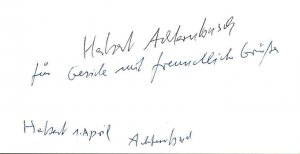 Herbert Achternbusch
für Gerda mit freundlichen Grüßen
Herbert 1. April Achternbusch